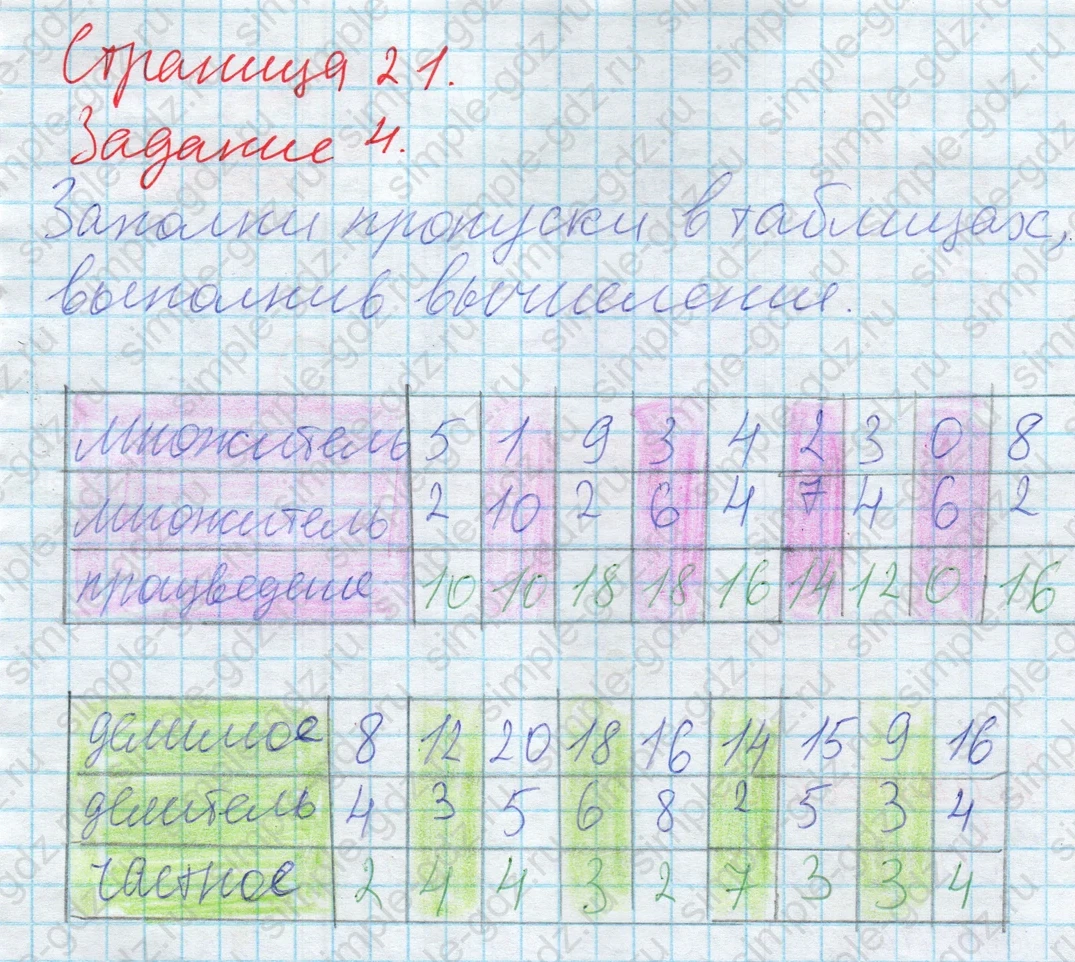 Страница 21.
Задание 4.
Заполни пропуски в таблицах,
выполнив вычисления.
множитель 5 1 9 3 4 2 3 0 8
множитель 2 10 2 6 4 7 4 6 2
произведение 10 10 18 18 16 14 12 0 16
делимое 8 12 20 18 16 14 15 9 16
делитель 4 3 5 6 8 2 5 3 4
частное 2 4 4 3 2 7 3 3 4
simple-gdz.ru